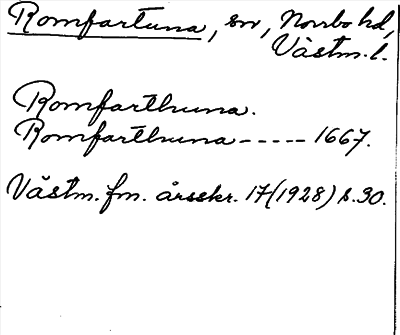 Romfartuna, sn, Norrbo hd,
Västm. l.
Romfarthuna.
Romfarthuna ----- 1667.
Västm. fm. årsskr. 17 (1928) s. 30.